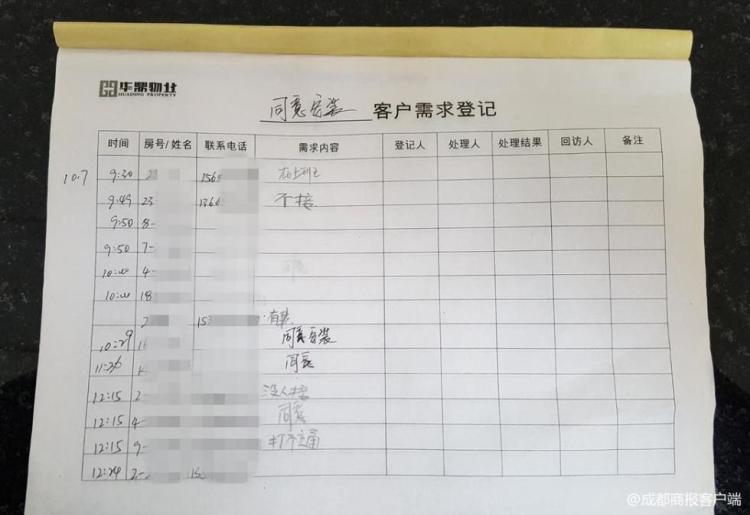 华鼎物业
HUADING PROPERTY
同意安装 客户需求登记
时间 房号/姓名 联系电话 需求内容 登记人 处理人 处理结果 回访人 备注
10.7 9:30 2 156 在上班
9:49 23 136 不接
9:50 8-
9:50 7-
10:00 4-
10:00 18
2 153 有事
10:29 16 同意安装
11:26 同意
12:15 2- 没人接
12:15 4- 同意
12:15 9- 打不通
12:24 2-
@成都商报客户端